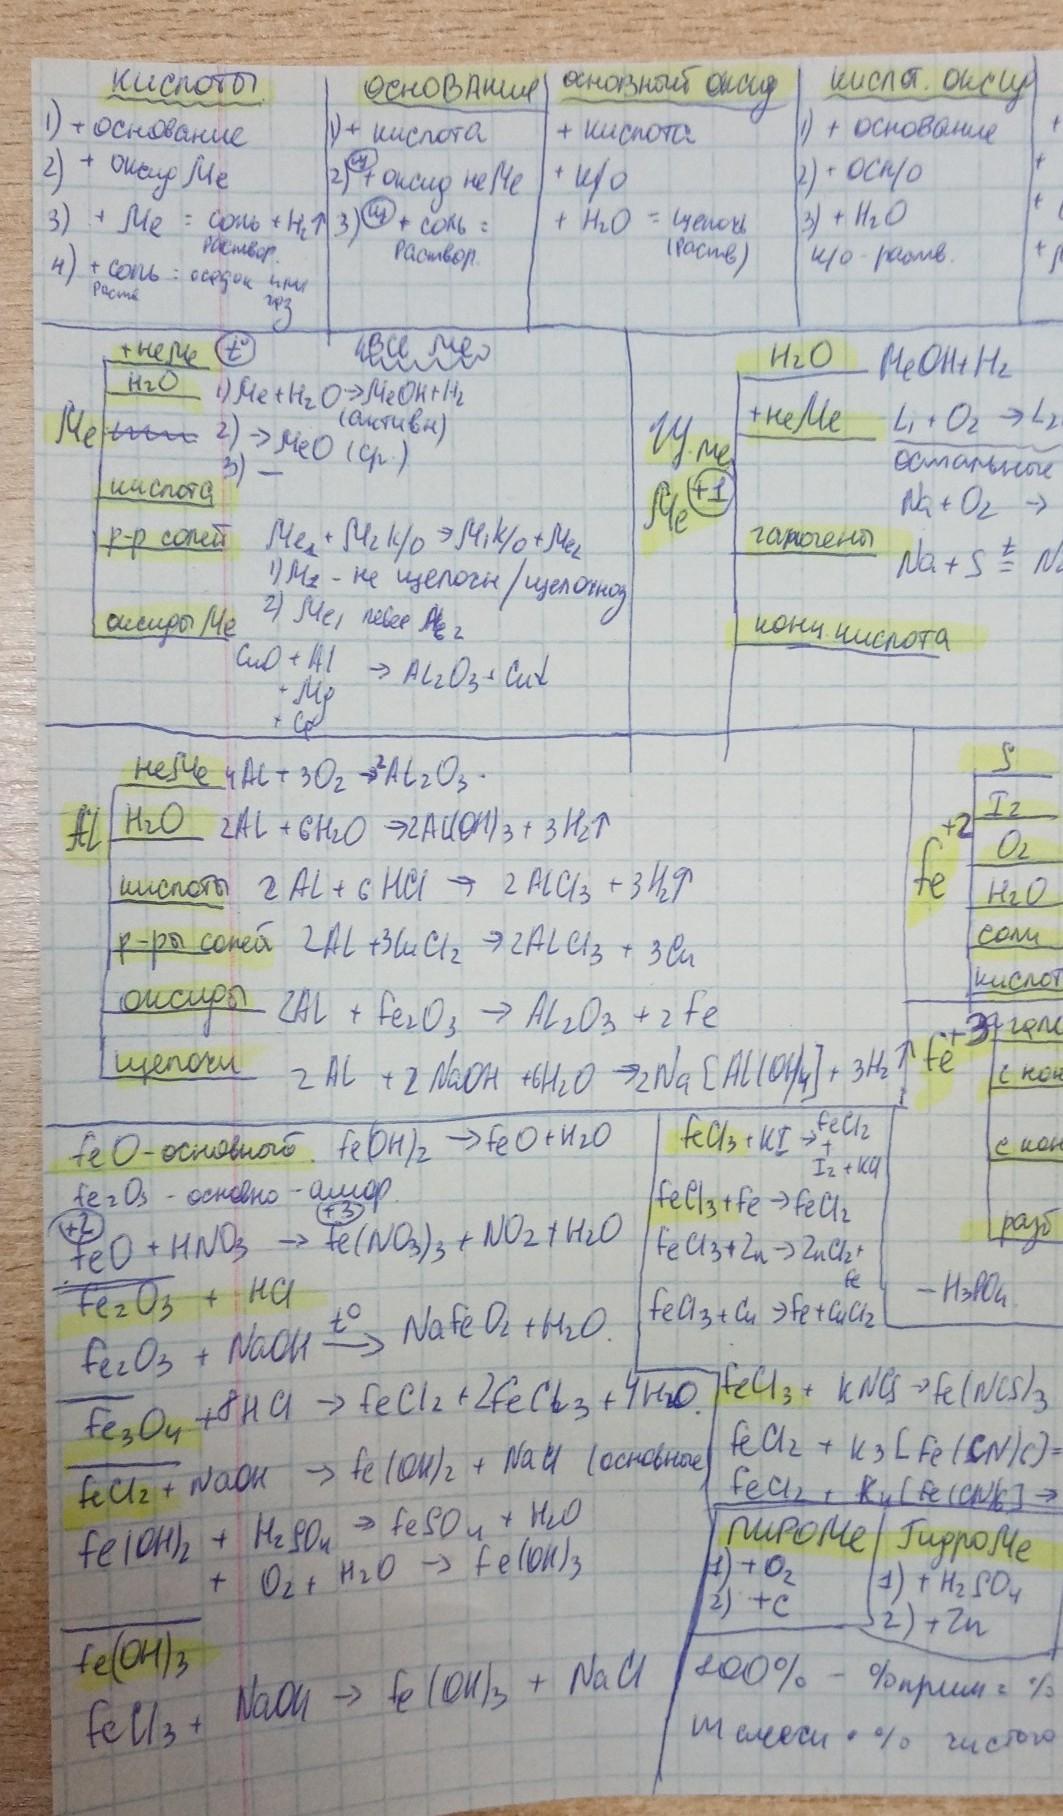 кислоты
1) + основание
2) + оксид Me
3) + Me = соль + H₂↑
раствор.
4) + соль = осадок или газ
раств
основание
1) + кислота
2) щ + оксид неMe
3) щ + соль =
раствор.
основный оксид
+ кислота
+ к/о
+ H₂O = щелочь
(раств)
кислот. оксид
1) + основание
2) + осн/о
3) + H₂O
к/о раств.
Me
+неMe t°
"все Me"
H₂O 1) Me + H₂O → MeOH + H₂
(активн)
2) → MeO (ср.)
3) —
кислота
р-р солей Me₁ + M₂к/о → M₁к/о + Me₂
1) M₁ - не щелочн/щелочноз
2) Me₁ левее Me₂
оксиды Me
CuO + Al → Al₂O₃ + Cu↓
+ Mg
+ Cr
Щ. Me
Me +1
H₂O MeOH + H₂
+неMe Li + O₂ → L
остальные
Na + O₂ →
галогены Na + S t=
конц. кислота
Al
неMe 4Al + 3O₂ → 2Al₂O₃.
H₂O 2Al + 6H₂O → 2Al(OH)₃ + 3H₂↑
кислоты 2Al + 6HCl → 2AlCl₃ + 3H₂↑
р-ры солей 2Al + 3CuCl₂ → 2AlCl₃ + 3Cu
оксиды 2Al + Fe₂O₃ → Al₂O₃ + 2Fe
щелочи 2Al + 2NaOH + 6H₂O → 2Na[Al(OH)₄] + 3H₂↑
Fe +2
S
I₂
O₂
H₂O
соли
кислот
Fe +3
гало
с кон
с кон
разб
- H₃PO₄
FeO - основный. Fe(OH)₂ → FeO + H₂O
Fe₂O₃ - основно - амфор.
+2 +3
FeO + HNO₃ → Fe(NO₃)₃ + NO₂ + H₂O
Fe₂O₃ + HCl
Fe₂O₃ + NaOH t° → NaFeO₂ + H₂O.
Fe₃O₄ + 8HCl → FeCl₂ + 2FeCl₃ + 4H₂O.
FeCl₂ + NaOH → Fe(OH)₂ + NaCl (основные
Fe(OH)₂ + H₂SO₄ → FeSO₄ + H₂O
+ O₂ + H₂O → Fe(OH)₃
Fe(OH)₃
FeCl₃ + NaOH → Fe(OH)₃ + NaCl
FeCl₃ + KI → FeCl₂
+
I₂ + KCl
FeCl₃ + Fe → FeCl₂
FeCl₃ + Zn → ZnCl₂ +
Fe
FeCl₃ + Cu → Fe + CuCl₂
FeCl₃ + KNCS → Fe(NCS)₃
FeCl₂ + K₃[Fe(CN)6] =
FeCl₂ + K₄[Fe(CN)6] →
ПироMe
1) + O₂
2) + C
ГидроMe
1) + H₂SO₄
2) + Zn
100% - % прим = %
m смеси · % чистого